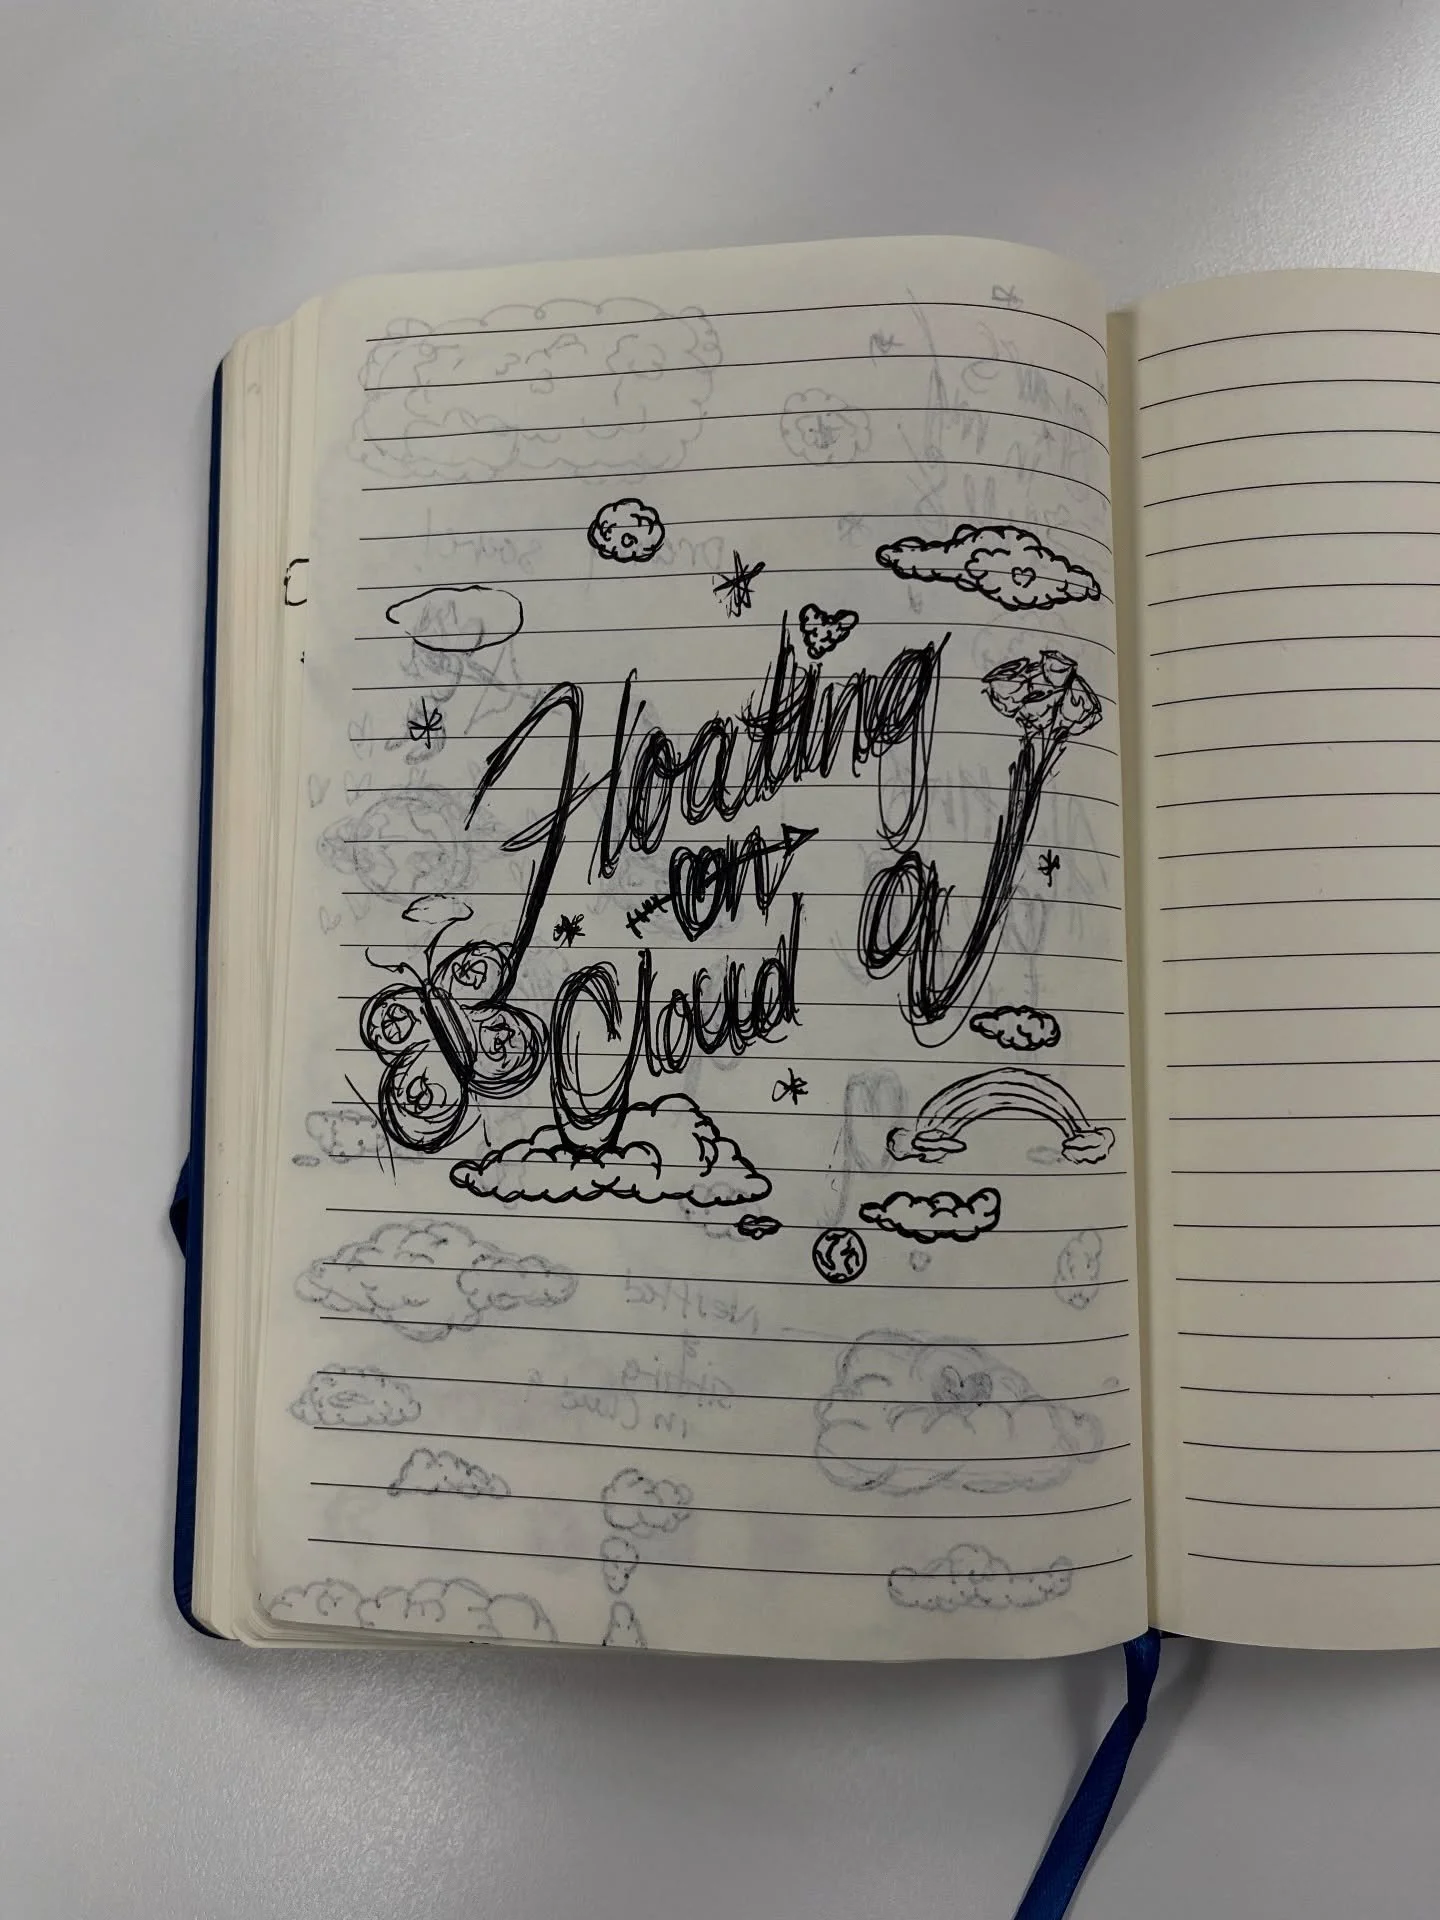 Floating
on a
Cloud